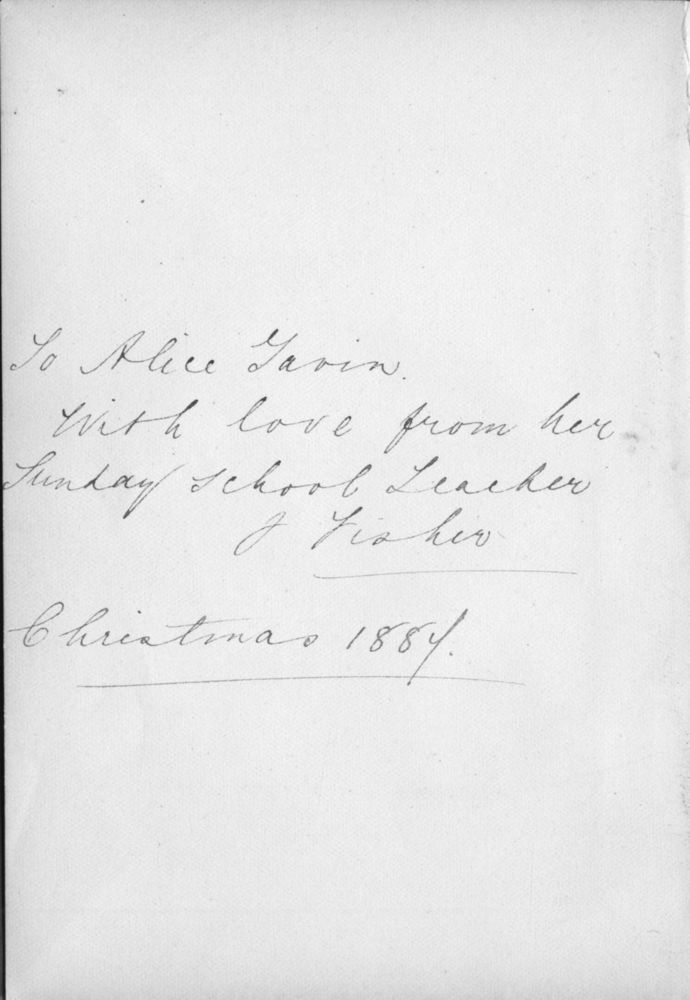 To Alice Gavin.
With love from her
Sunday School Teacher
J Fisher
Christmas 1884.